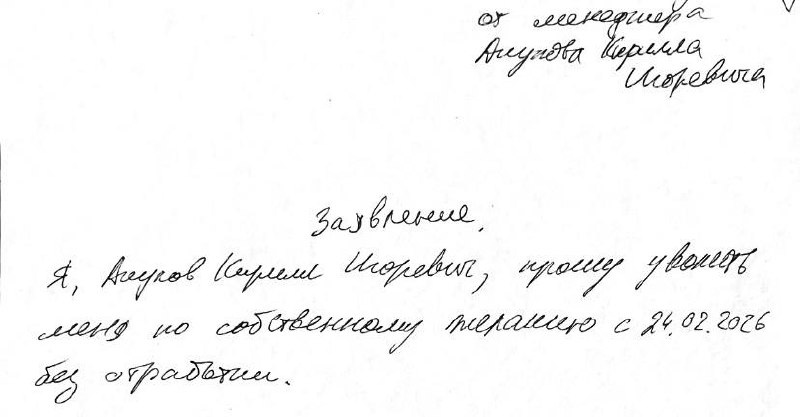 от менеджера
Анухова Кирилла
Игоревича
Заявление.
Я, Анухов Кирилл Игоревич, прошу уволить
меня по собственному желанию с 24.02.2026
без отработки.